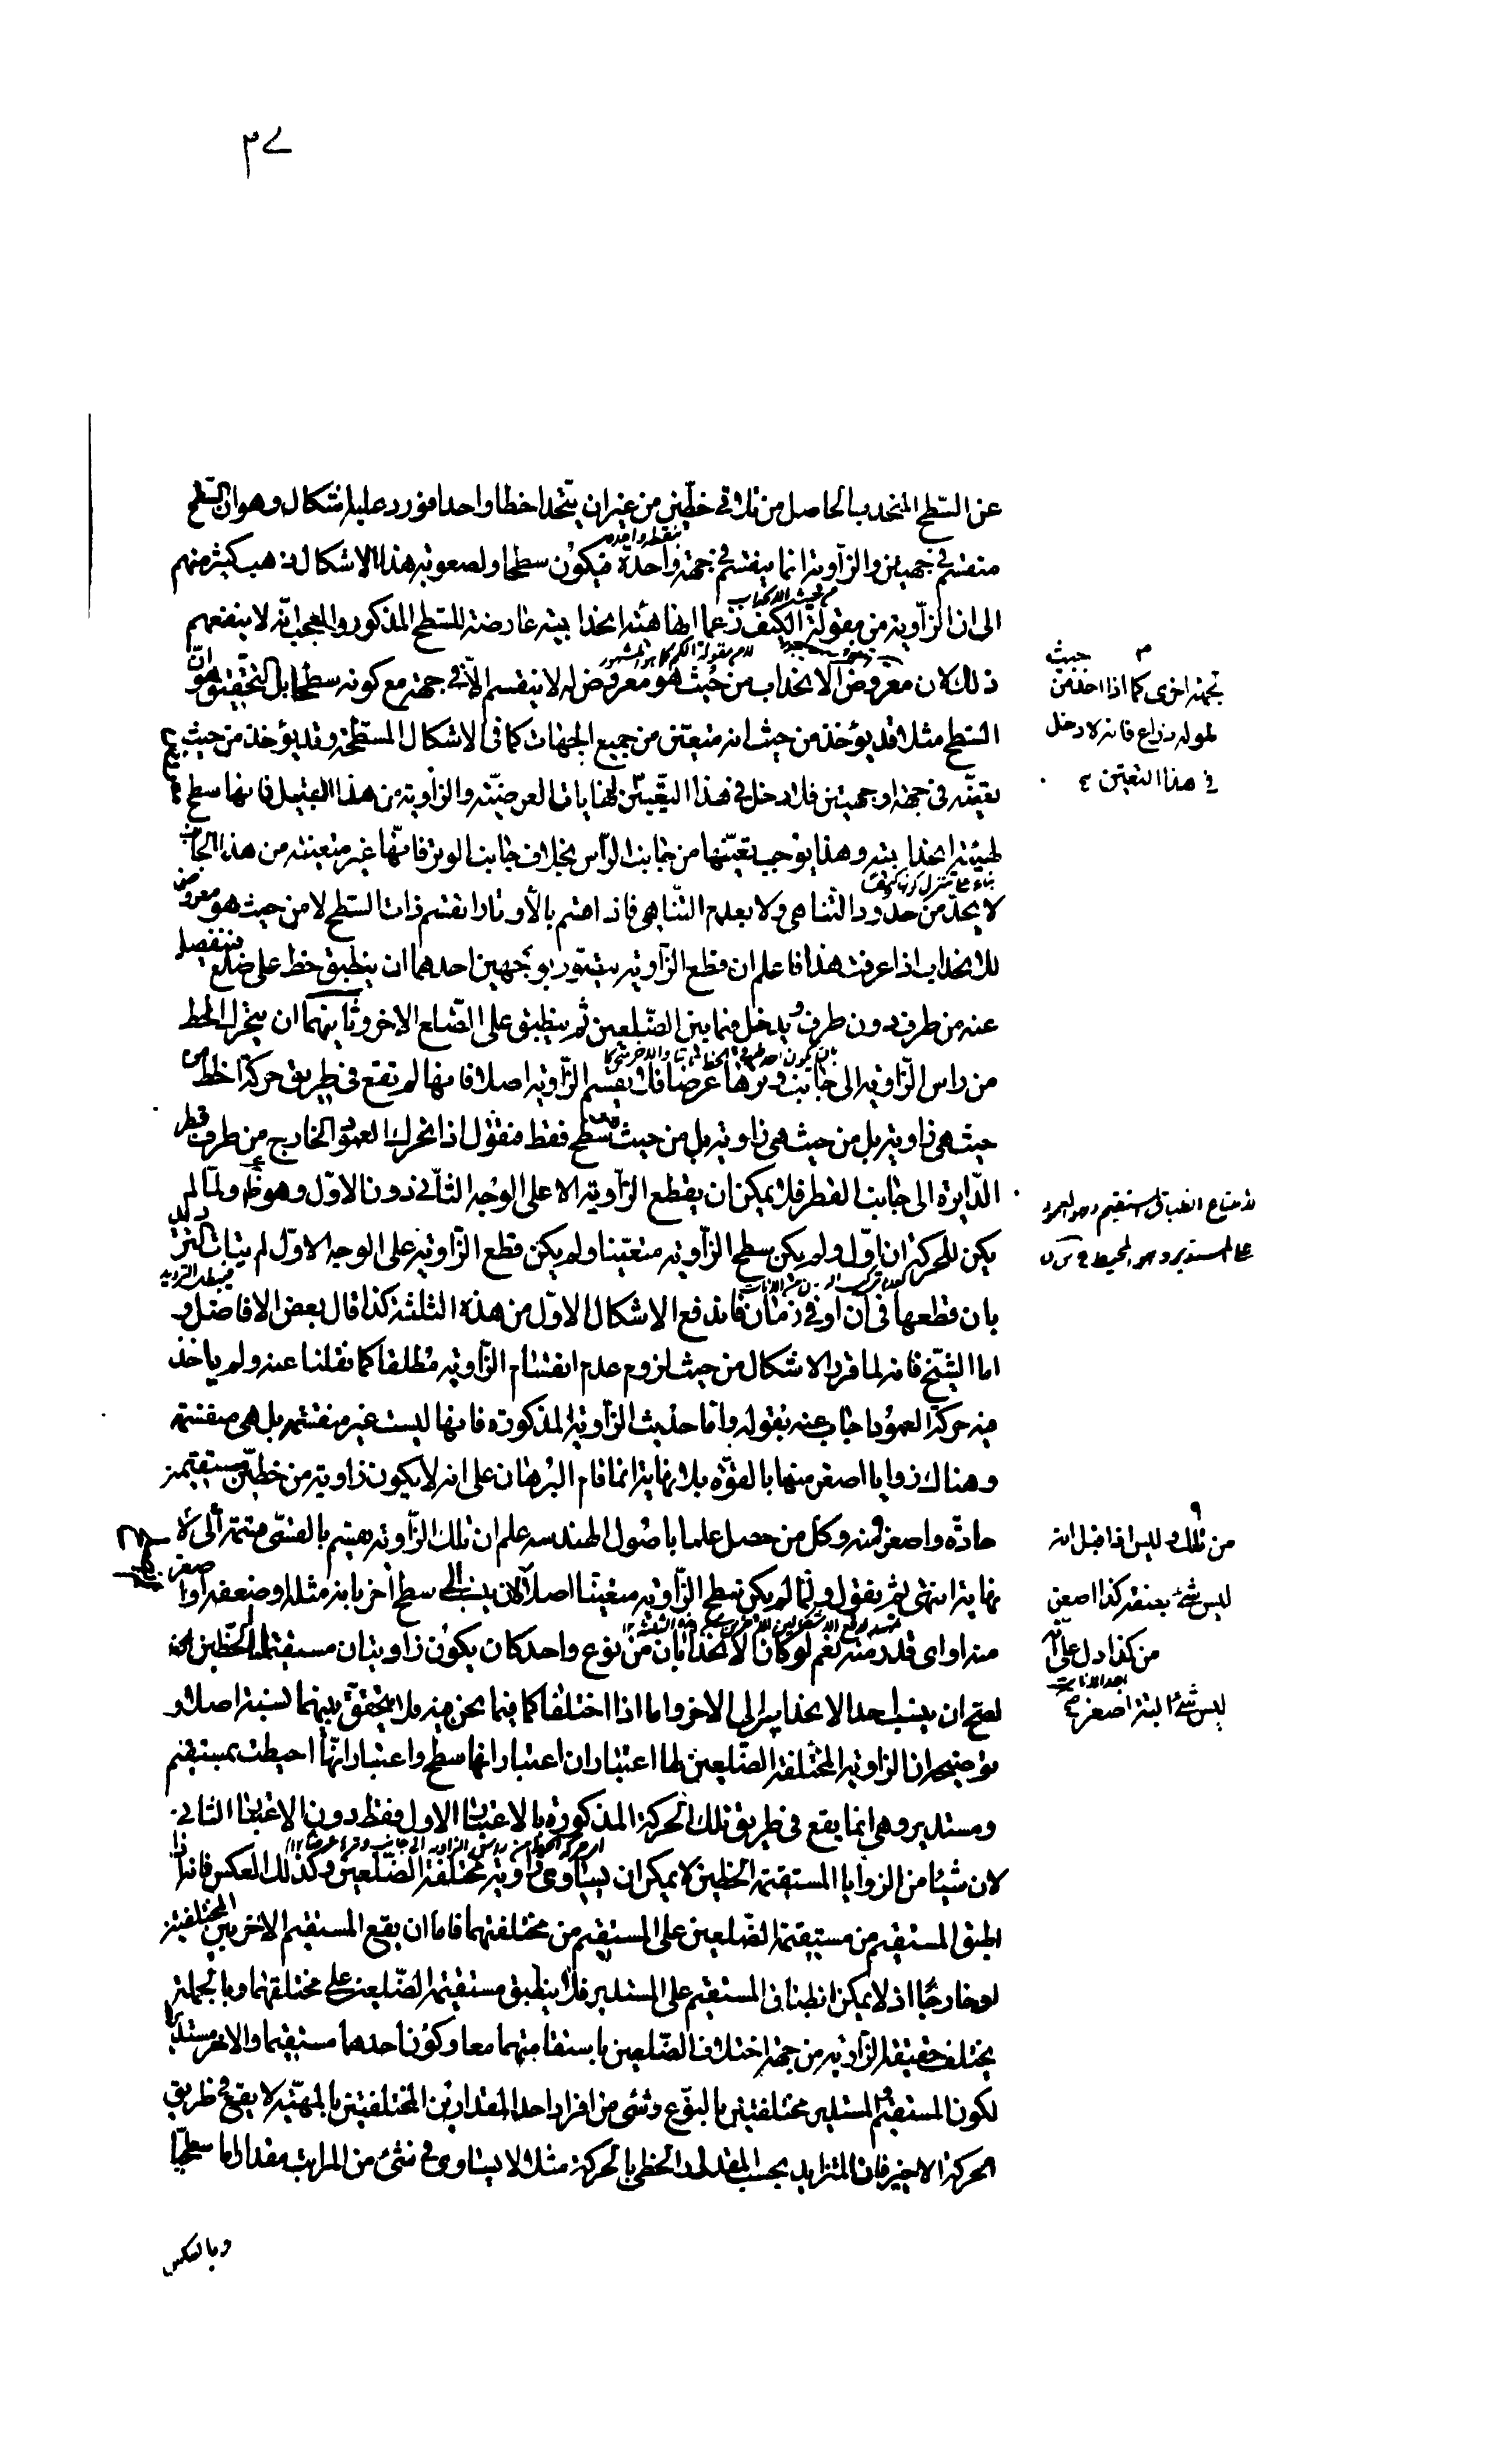 ٣٧
عن السّطح المنحدب الحاصل من تلاقي خطّين من غير ان يتّحدا خطا واحدا فورد عليه اشكال وهو ان السّطح
منقسم في جهتين والزّاوية انما ينقسم في جهة واحدة فيكون سطحا ولصعوبة هذا الاشكال ذهب كثير منهم
الى ان الزّاوية من مقولة الكيف زعما انها هيئة انحدابية عارضة للسّطح المذكور والعجب انّه لا ينفعهم
ذلك لان معروض الانحداب من حيث هو معروض له لا ينقسم الّا في جهة مع كونه سطحا بل التحقيق هو انّ
السّطح مثلا قد يؤخذ من حيث انه متعيّن من جميع الجهات كما في الاشكال المسطّحة وقد يؤخذ من حيث
تعيّنه في جهة او جهتين فلا دخل في هذا التعيّن لنهاياته العرضيّة والزاوية من هذا القبيل فانها سطح
لهيئة انحدابية وهذا يوجب تعيّنها من جانب الرّاس بخلاف جانب الوتر فانّها غير متعينة من هذا الجانب
لا بحدّ من حدود التّناهى ولا بعدم التّناهى فاذا قسّم بالأوتار انقسم ذات السّطح لا من حيث هو معروض
للانحداب اذا عرفت هذا فاعلم ان قطع الزّاوية يتصوّر بوجهين احدهما ان ينطبق خط على ضلع فينفصل
عنه من طرف دون طرف ويدخل فيما بين الضّلعين ثم ينطبق على الضّلع الاخر وثانيهما ان يتحرّك الخط
من راس الزّاوية الى جانب وترها عرضا فلا ينقسم الزّاوية اصلا فانها لم تقع في طريق حركة الخط من
حيث هى زاوية بل من حيث هى سطح فقط فنقول اذا تحرّك العمود الخارج من طرف قطر
الدّايرة الى جانب القطر فلا يمكن ان يقطع الزّاوية الا على الوجه الثّاني دون الاوّل وهو ظ ولمّا لم
يكن للحركة ان اوّل ولم يكن سطح الزّاوية متعيّنا ولم يكن قطع الزّاوية على الوجه الاوّل لم يتات الترديد
بان قطعها في آن او في زمان فاندفع الاشكال الاوّل من هذه الثلثة كذا قال بعض الافاضل و
اما الشّيخ فانه لما قرر الاشكال من حيث لزوم عدم انقسام الزّاوية مطلقا كما نقلنا عنه ولم ياخذ
فيه حركة العمود اجاب عنه بقوله وامّا حديث الزّاوية المذكورة فانها ليست غير منقسمة بل هى منقسمة
وهناك زوايا اصغر منها بالقوّة بلا نهاية انما قام البرهان على انه لا يكون زاوية من خطين مستقيمين
حادّة واصغر منه وكلّ من حصل علما باصول الهندسة علم ان تلك الزّاوية يقسّم بالقسّى قسمة الى لا
نهاية انتهى ثم يقول ولمّا لم يكن سطح الزّاوية متعيّنا اصلا لان ينسب الى سطح اخر بانه مثله او ضعفه او اصغر
منه او اى قدر منه نعم لو كان الانحدابان من نوع واحد كان يكون زاويتان مستقيمتا الخطين
لصحّ ان ينسب احد الانحدابين الى الاخر واما اذا اختلفا كما فيما نحن فيه فلا يتحقق بينهما نسبة اصلا و
توضيحه ان الزاوية المختلفة الضّلعين لها اعتباران اعتبار انها سطح واعتبار انّها احيطت بمستقيم
ومستدير وهى انما يقع في طريق تلك الحركة المذكورة بالاعتبار الاول فقط دون الاعتبار الثاني
لان شيئا من الزوايا المستقيمة الخطين لا يمكن ان يساوى زاوية مختلفة الضّلعين وكذلك العكس فانه اذا
اطبق المستقيم من مستقيمة الضّلعين على المستقيم من مختلفتهما فاما ان يقع المستقيم الاخر بين المختلفين
او خارجا اذ لا يمكن انطباق المستقيم على المستدير فلا ينطبق مستقيمة الضّلعين على مختلفتهما وبالجملة
يختلف حقيقة الزّاوية من جهة اختلاف الضّلعين باستقامتهما معا وكون احدهما مستقيما والاخر مستديرا
لكون المستقيم والمستدير مختلفتين بالنّوع وشى من افراد احد المقدارين المختلفين بالمهيّة لا يقع في طريق
الحركة الاخير فان المتزايد بحسب المقدار الخطى بالحركة مثلا لا يساوى في شئ من المراتب مقدارا ما سطحيّا
وبالعكس
بجهة اخرى كما اذا اخذ من حيث
طوله ذراع فانه لا دخل
في هذا التعيّن
لامتناع انطباق المستقيم وهو العمود
على المستدير وهو المحيط
من تلك وليس اذا قيل انه
ليس شئ بصفة كذا اصغر
من كذا دل على انّه
ليس شئ البتة اصغر